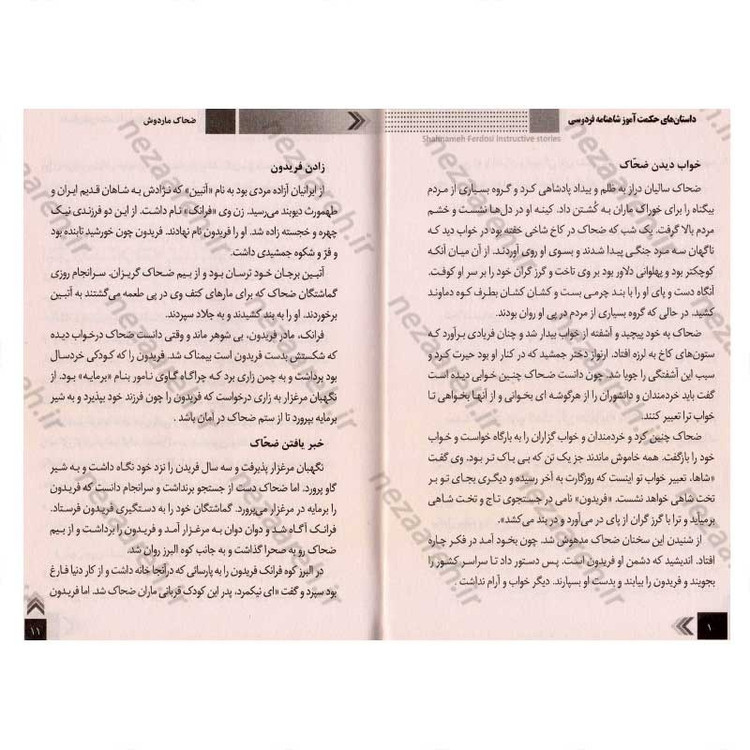 داستان‌های حکمت آموز شاهنامه فردوسی
Shahnameh Ferdosi Instructive stories
خواب دیدن ضحّاک
ضحاک سالیان دراز به ظلم و بیداد پادشاهی کرد و گروه بسیاری از مردم
بیگناه را برای خوراک ماران به کُشتن داد. کینه او در دل‌ها نشست و خشم
مردم بالا گرفت. یک شب که ضحاک در کاخ شاخی خفته بود در خواب دید که
ناگهان سه مرد جنگی پیدا شدند و بسوی او روی آوردند. از آن میان آنکه
کوچکتر بود و پهلوانی دلاور بود بر وی تاخت و گرز گران خود را بر سر او کوفت.
آنگاه دست و پای او را با بند چرمی بست و کشان کشان بطرف کوه دماوند
کشید. در حالی که گروه بسیاری از مردم در پی او روان بودند.
ضحاک به خود پیچید و آشفته از خواب بیدار شد و چنان فریادی برآورد که
ستون‌های کاخ به لرزه افتاد. ارنواز دختر جمشید که در کنار او بود حیرت کرد و
سبب این آشفتگی را جویا شد. چون دانست ضحاک چنین خوابی دیده است
گفت باید خردمندان و دانشوران را از هرگوشه ای بخوانی و از آنها بخواهی تا
خواب ترا تعبیر کنند.
ضحاک چنین کرد و خردمندان و خواب گزاران را به بارگاه خواست و خواب
خود را بازگفت. همه خاموش ماندند جز یک تن که بی باک تر بود. وی گفت
«شاها، تعبیر خواب تو اینست که روزگارت به آخر رسیده و دیگری بجای تو بر
تخت شاهی خواهد نشست. «فریدون» نامی در جستجوی تاج و تخت شاهی
برمیاید و ترا با گرز گران از پای در می‌آورد و در بند می‌کشد».
از شنیدن این سخنان ضحاک مدهوش شد. چون بخود آمد در فکر چاره
افتاد. اندیشید که دشمن او فریدون است. پس دستور داد تا سراسر کشور را
بجویند و فریدون را بیابند و بدست او بسپارند. دیگر خواب و آرام نداشت.
ضحاک ماردوش
زادن فریدون
از ایرانیان آزاده مردی بود به نام «آتبین» که نژادش به شاهان قدیم ایران و
طهمورث دیوبند می‌رسید. زن وی «فرانک» نام داشت. از این دو فرزندی نیک
چهره و خجسته زاده شد. او را فریدون نام نهادند. فریدون چون خورشید تابنده بود
و فرّ و شکوه جمشیدی داشت.
آتبین برجان خود ترسان بود و از بیم ضحاک گریزان. سرانجام روزی
گماشتگان ضحاک که برای مارهای کتف وی در پی طعمه می‌گشتند به آتبین
برخوردند. او را به بند کشیدند و به جلاد سپردند.
فرانک، مادر فریدون، بی شوهر ماند و وقتی دانست ضحاک درخواب دیده
که شکستش بدست فریدون است بیمناک شد. فریدون را که کودکی خردسال
بود برداشت و به چمن زاری برد که چراگاه گاوی نامور بنام «برمایه» بود. از
نگهبان مرغزار به زاری درخواست که فریدون را چون فرزند خود بپذیرد و به شیر
برمایه بپرورد تا از ستم ضحاک در امان باشد .
خبر یافتن ضحّاک
نگهبان مرغزار پذیرفت و سه سال فریدن را نزد خود نگاه داشت و به شیر
گاو پرورد. اما ضحاک دست از جستجو برنداشت و سرانجام دانست که فریدون
را برمایه در مرغزار می‌پرورد. گماشتگان خود را به دستگیری فریدون فرستاد.
فرانک آگاه شد و دوان دوان به مرغزار آمد و فریدون را برداشت و از بیم
ضحاک رو به صحرا گذاشت و به جانب کوه البرز روان شد.
در البرز کوه فرانک فریدون را به پارسائی که درآنجا خانه داشت و از کار دنیا فارغ
بود سپرد و گفت «ای نیکمرد، پدر این کودک قربانی ماران ضحاک شد. اما فریدون
۱۱
nezaareh.ir